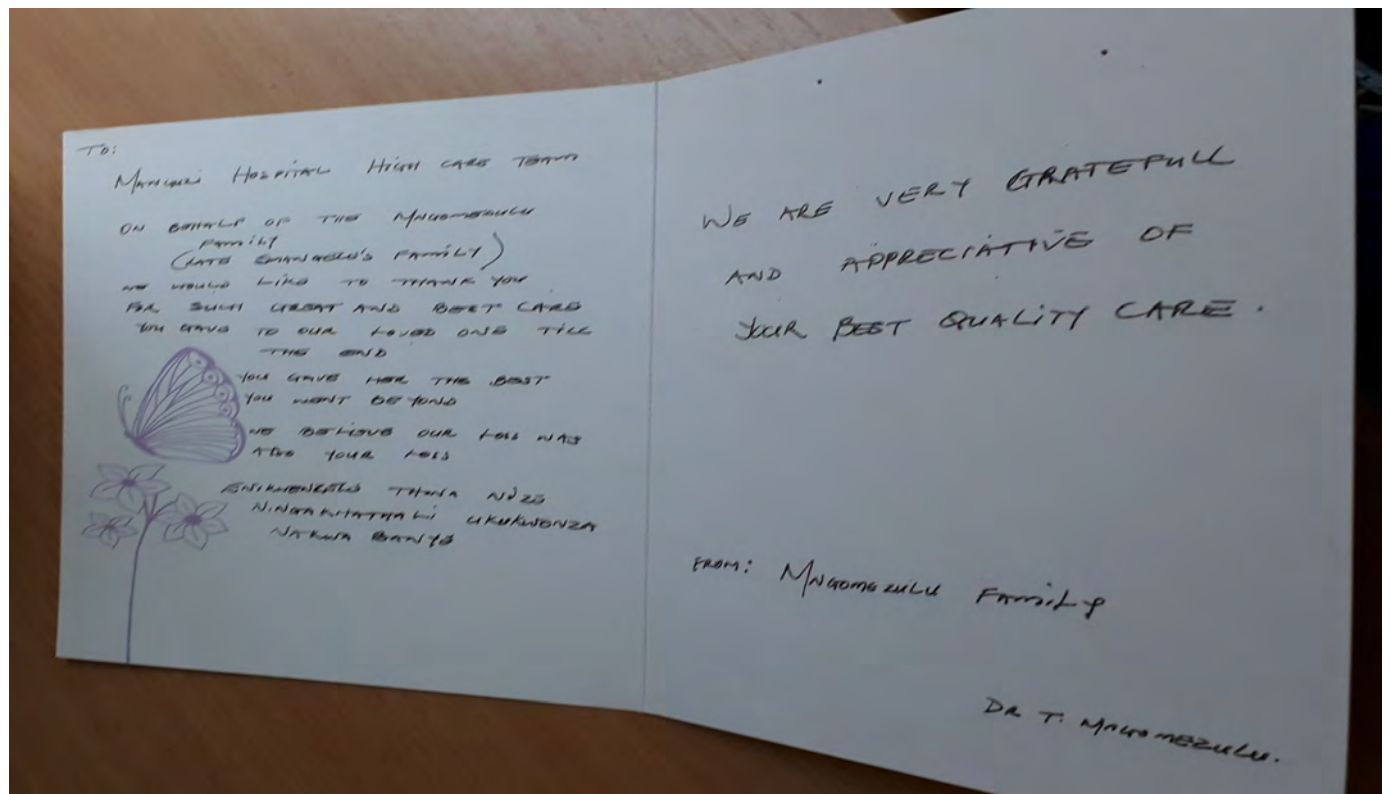 TO:
MANGUZI HOSPITAL HIGH CARE TEAM
ON BEHALF OF THE MNGOMEZULU
FAMILY
(LATE FAMILY)
WE WOULD LIKE TO THANK YOU
FOR SUCH GREAT AND BEST CARE
YOU GAVE TO OUR LOVED ONE TILL
THE END
YOU GAVE HER THE BEST
YOU WENT BEYOND
WE BELIEVE OUR LOSS WAS
ALSO YOUR LOSS
THINA NIZE
NINGAKHATHALI UKUKWENZA
NAKWA BANYE
WE ARE VERY GRATEFULL
AND APPRECIATIVE OF
YOUR BEST QUALITY CARE.
FROM: MNGOMEZULU FAMILY
DR T. MNGOMEZULU.